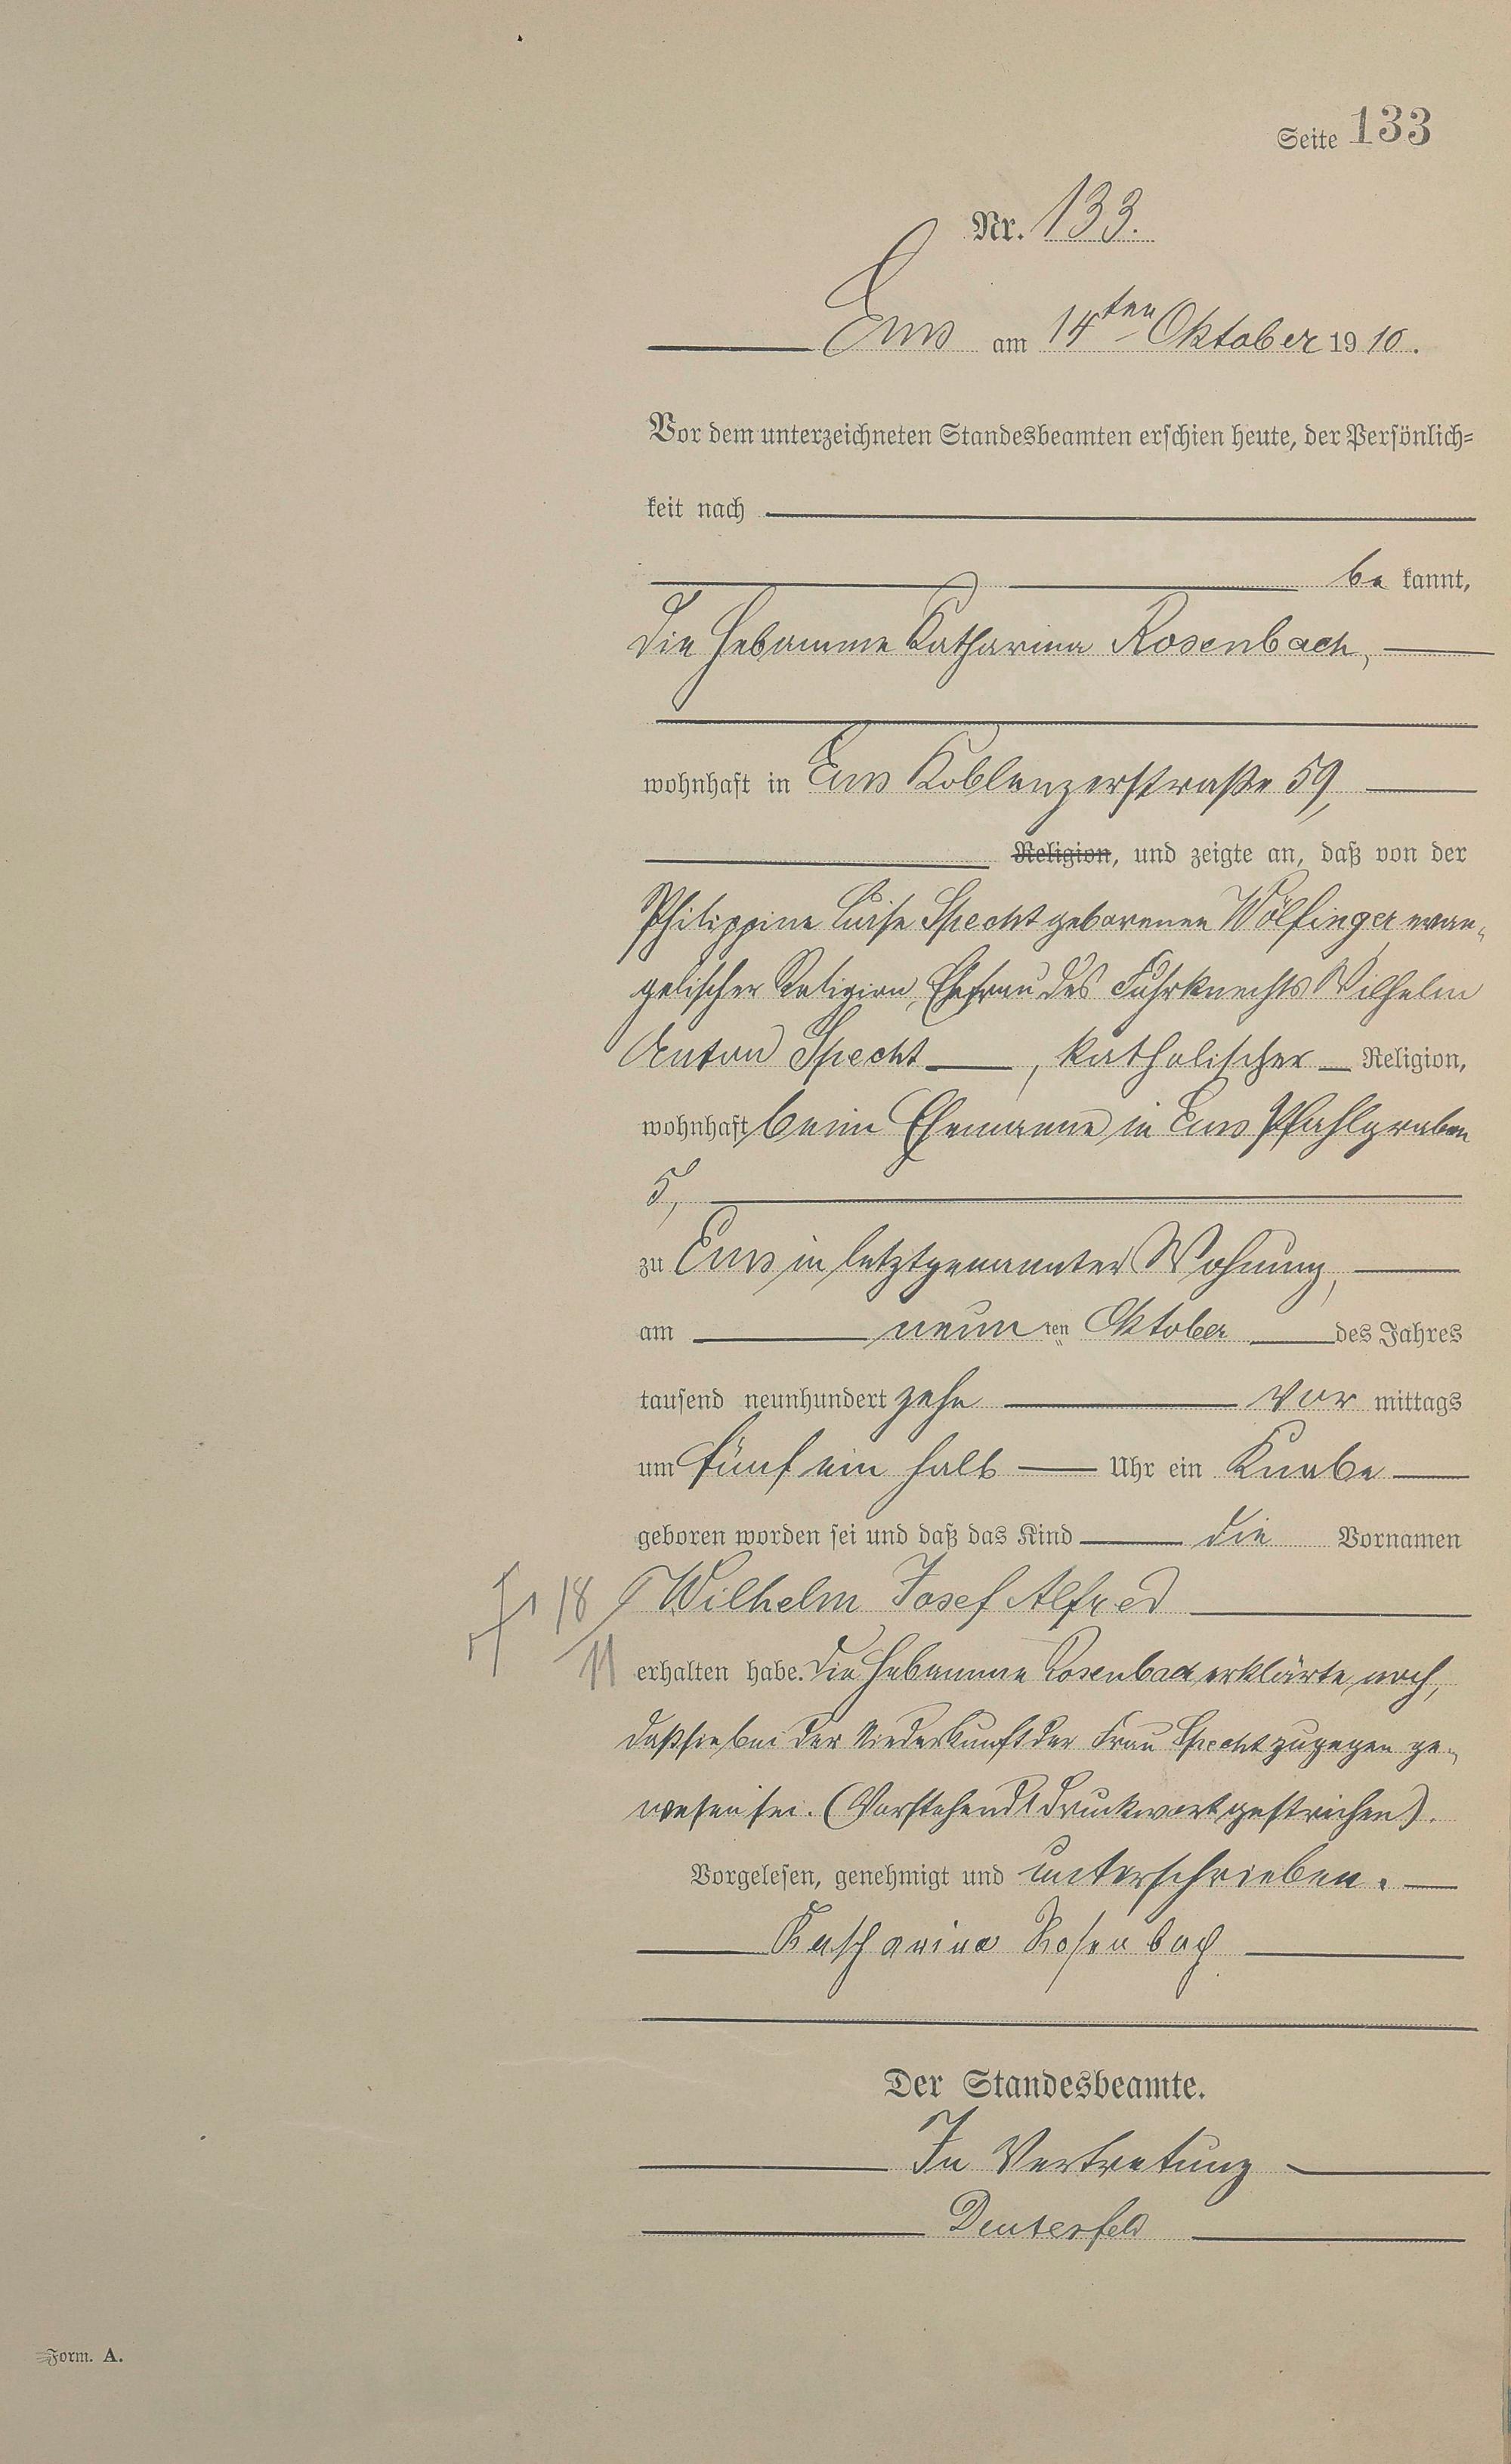 Seite 133
Nr. 133.
Ems am 14ten Oktober 1910.
Vor dem unterzeichneten Standesbeamten erschien heute, der Persönlich=
keit nach
be kannt,
die Hebamme Katharina Rosenbach,
wohnhaft in Ems Koblenzerstraße 59,
Religion, und zeigte an, daß von der
Philippine Luise Specht geborenen Wölfinger evan-
gelischer Religion, Ehefrau des Fuhrknechts Wilhelm
Anton Specht, katholischer Religion,
wohnhaft beim Ehemanne in Ems Pfahlgraben
5,
zu Ems in letztgenannter Wohnung,
am neunten Oktober des Jahres
tausend neunhundert zehn vor mittags
um fünf ein halb Uhr ein Knabe
geboren worden sei und daß das Kind die Vornamen
18 Wilhelm Josef Alfred
11 erhalten habe. Die Hebamme Rosenbach erklärte noch,
daß sie bei der Niederkunft der Frau Specht zugegen ge-
wesen sei. (Vorstehend 1 Druckwort gestrichen).
Vorgelesen, genehmigt und unterschrieben.
Katharina Rosenbach
Der Standesbeamte.
In Vertretung
Form. A.